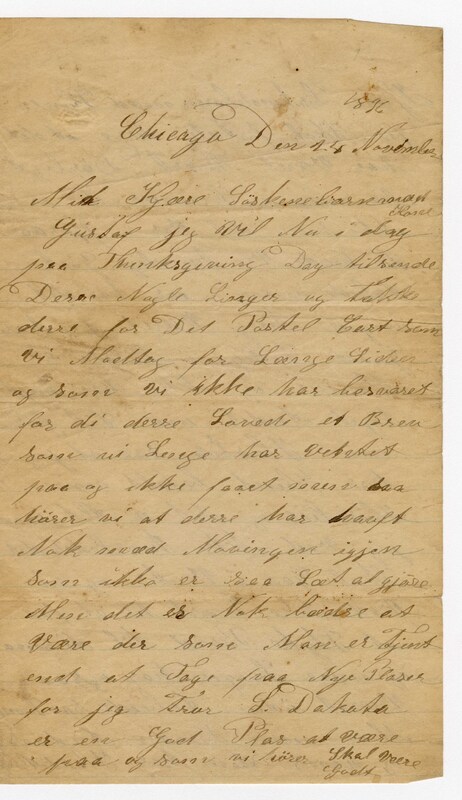 1896
Chicago Den 25 November
Mit Kjære Söskenebarn mæd
Kone
Gustaf jeg Vil Nu i dag
paa Thanksgeving Day tilsende
Derre Nogle Linger og takke
derre for Det Postel Cart som
vi Modtog for Længe Siden
og som vi ikke har besvaret
for di derre Lovede et Brev
som vi Lenge har ventet
paa og ikke faaet men saa
hörer vi at derre har havft
Nok mæd Movingen igjen
som ikke er saa Læt at gjöre
Men det er Nok bedre at
være der som Man er Kjent
end at Tage paa Nye Plaser
for jeg Tror S. Dakota
er en God Plas at være
paa og som vi hörer Skal være
Godt